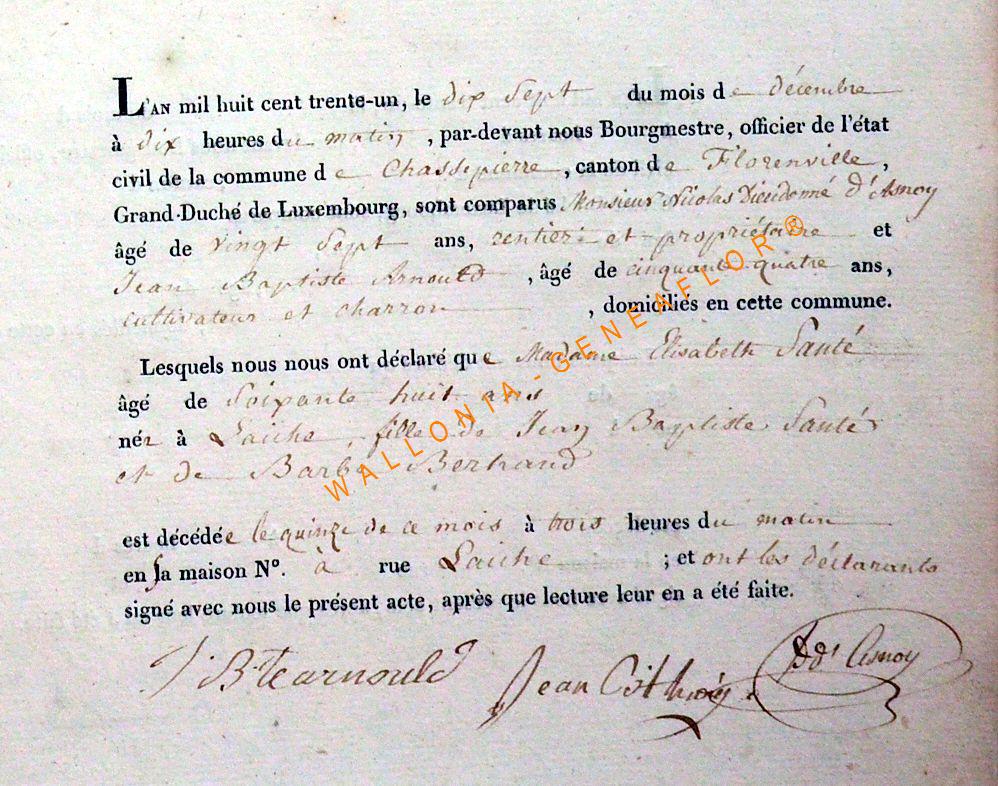 L'AN mil huit cent trente-un, le dix sept du mois de décembre
à dix heures du matin, par-devant nous Bourgmestre, officier de l'état
civil de la commune de Chassepierre, canton de Florenville,
Grand-Duché de Luxembourg, sont comparus Monsieur Nicolas Dieudonné d'Asnoy
âgé de vingt sept ans, rentier et propriétaire et
Jean Baptiste Arnould, âgé de cinquante quatre ans,
cultivateur et charron, domiciliés en cette commune.
Lesquels nous nous ont déclaré que Madame Elisabeth Santé
âgé de Soixante huit ans
née à Laiche, fille de Jean Baptiste Santé
et de Barbe Bertrand
est décédée le quinze de ce mois à trois heures du matin
en sa maison N°. à rue Laiche ; et ont les déclarants
signé avec nous le présent acte, après que lecture leur en a été faite.
J B te arnould
Jean
Dd' Asnoy
WALLONIA-GENEAFLOR ®